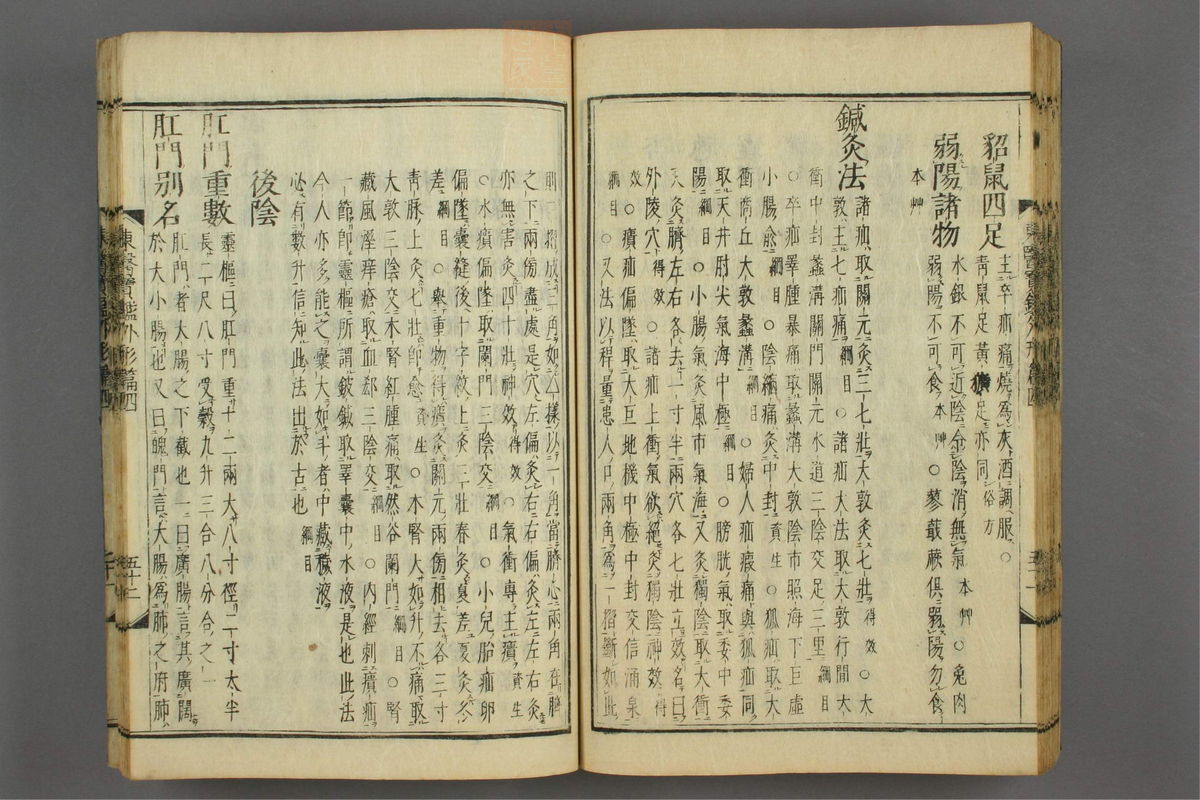 貂鼠四足 主卒疝痛燒爲灰酒調服○
青鼠足黃獷足亦同俗方
弱陽諸物 水銀不可近陰令陰消無氣本艸○兔肉
弱陽不可食本艸○蓼蕺蕨俱弱陽勿食
本艸
鍼灸法 諸疝取關元灸三七壯大敦灸七壯得效○大
敦主七疝痛綱目○諸疝大法取大敦行間大
衝中封蠡溝關門關元水道三陰交足三里綱目
○卒疝睪腫暴痛取蠡溝大敦陰市照海下巨虛
小腸兪綱目○陰縮痛灸中封資生○狐疝取大
衝商丘大敦蠡溝綱目○婦人疝瘕痛與狐疝同
取天井肘尖氣海中極綱目○膀胱氣取委中委
陽綱目○小腸氣灸風市氣海又灸獨陰取大衝
又灸臍左右各去一寸半兩穴各七壯立效名曰
外陵穴得效○諸疝上衝氣欲絶灸獨陰神效得
效○㿉疝偏墜取大巨地機中極中封交信涌泉
綱目○又法以稈量患人口兩角爲一摺斷如此
則三摺成三角如△樣以一角當臍心兩角在臍
之下兩傍盡處是穴左偏灸右右偏灸左左右灸
亦無害灸四十壯神效得效○氣衝專主㿉資生
○水㿉偏墜取闌門三陰交綱目○小兒胎疝卵
偏墜囊縫後十字紋上灸三壯春灸夏差夏灸冬
差綱目○擧重物得㿉灸關元兩傍相去各三寸
靑脉上灸七壯卽愈資生○木腎大如升不痛取
大敦三陰交木腎紅腫痛取然谷闌門綱目○腎
藏風濕痒瘡取血郄三陰交綱目○內經刺㿉疝
一節卽靈樞所謂鈹鍼取睪囊中水液是也此法
今人亦多能之囊大如斗者中藏穢液
必有數升信知此法出於古也綱目
後陰
肛門重數 靈樞曰肛門重十二兩大八寸徑二寸太半
長二尺八寸受穀九升三合八分合之一
肛門別名 肛門者大腸之下截也一曰廣腸言其廣闊
於大小腸也又曰魄門言大腸爲肺之府肺
東醫寶鑑外形篇四
五十二